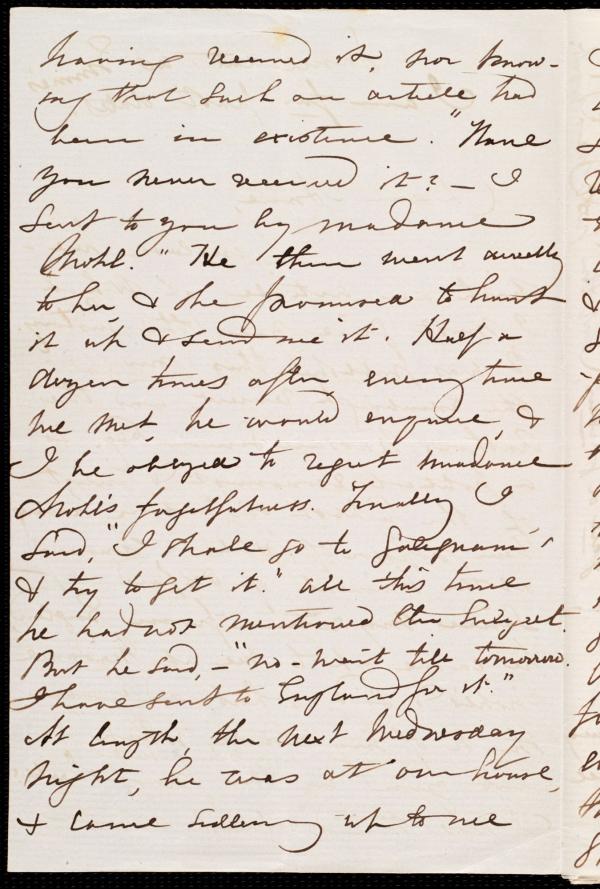 having received it, nor know-
ing that such an article had
been in existence. "Have
you never received it? – I
sent to you by madame
Mohl." He then went directly
to her, & she promised to hunt
it up & send me it. Half a
dozen times after, every time
we met, he would enquire, &
I be obliged to regret madame
Mohl's forgetfulness. Finally I
said, "I shall go to Galignani's
& try to get it." All this time
he had not mentioned the subject.
But he said, – "No – wait till tomorrow.
I have sent to England for it."
At length, the next Wednesday
night, he was at our house,
& came sidling up to me